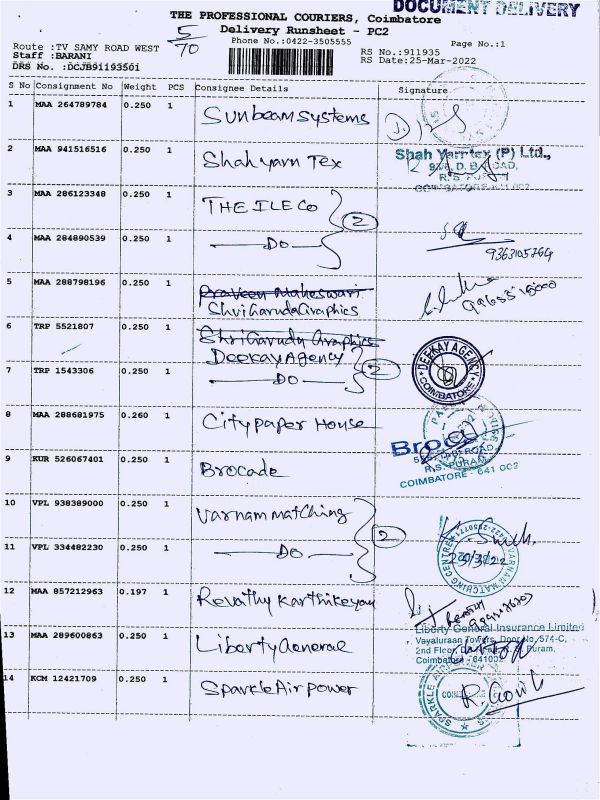 DOCUMENT DELIVERY
THE PROFESSIONAL COURIERS, Coimbatore
Delivery Runsheet - PC2
Phone No.:0422-3505555
5/70
Page No.:1
Route :TV SAMY ROAD WEST
Staff :BARANI
DRS No. :DCJB91193561
RS No.:911935
RS Date:25-Mar-2022
S No Consignment No Weight PCS Consignee Details Signature
1 MAA 264789784 0.250 1 Sunbeam systems
2 MAA 941516516 0.250 1 Shah yarn Tex
Shah Yarntex (P) Ltd.,
3 MAA 286123348 0.250 1 THE ILE Co
2
4 MAA 284890539 0.250 1 DO
9363105764
5 MAA 288798196 0.250 1 Praveen Maheswari
Shri Garuda Graphics
6 TRP 5521807 0.250 1 Shri Garuda Graphics
Deekay Agency
2
DEEKAY AGENCY
COIMBATORE
7 TRP 1543306 0.250 1 DO
8 MAA 288681975 0.260 1 City paper House
9 KUR 526067401 0.250 1 Brocade
R.S. PURAM,
COIMBATORE - 641 002
10 VPL 938389000 0.250 1 Varnam matching
2
VARNAM MATCHING CENTRE
11 VPL 334482230 0.250 1 DO
12 MAA 857212963 0.197 1 Revathy Karthikeyan
13 MAA 289600863 0.250 1 Liberty General
Liberty General Insurance Limited
Vayaluraan Towers, Door No. 574-C,
2nd Floor, Puram,
Coimbatore - 641002
14 KCM 12421709 0.250 1 Sparkle Air power
SPARKLE AIR